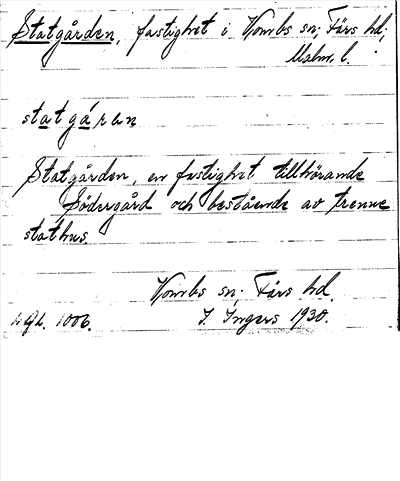 Statgården, fastighet i Vombs sn; Färs hd;
Malm. l.
statgáren
Statgården, en fastighet tillhörande
Södergård och bestående av trenne
stathus.
Vombs sn; Färs hd.
I. Ingers 1930.
1006.